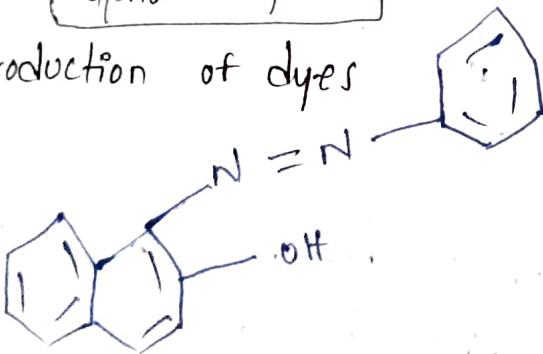 oduction of dyes
N = N
OH